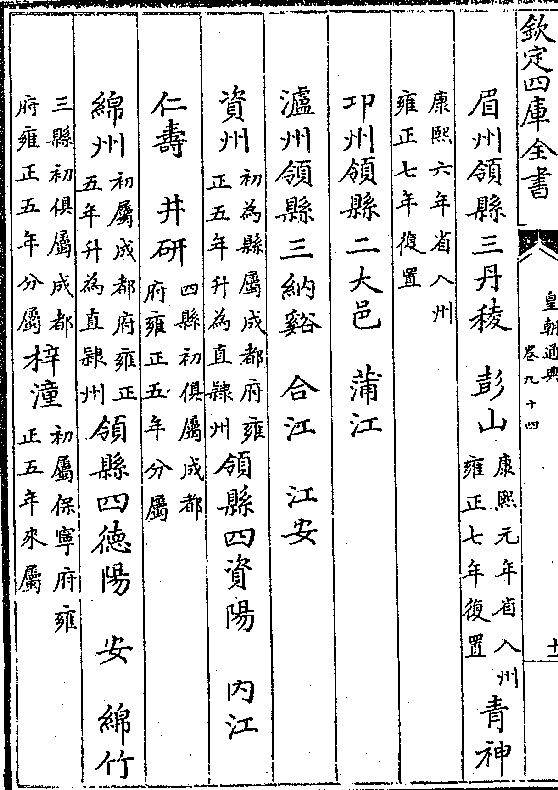 欽定四庫全書
皇朝通典
卷九十四
眉州領縣三丹稜　彭山康熙元年省入州雍正七年復置青神
康熙六年省入州雍正七年復置
邛州領縣二大邑　蒲江
瀘州領縣三納谿　合江　江安
資州初為縣屬成都府雍正五年升為直隸州領縣四資陽　內江
仁壽　井研四縣初俱屬成都府雍正五年分屬
綿州初屬成都府雍正五年升為直隸州領縣四德陽　安　綿竹
三縣初俱屬成都府雍正五年分屬梓潼初屬保寧府雍正五年來屬